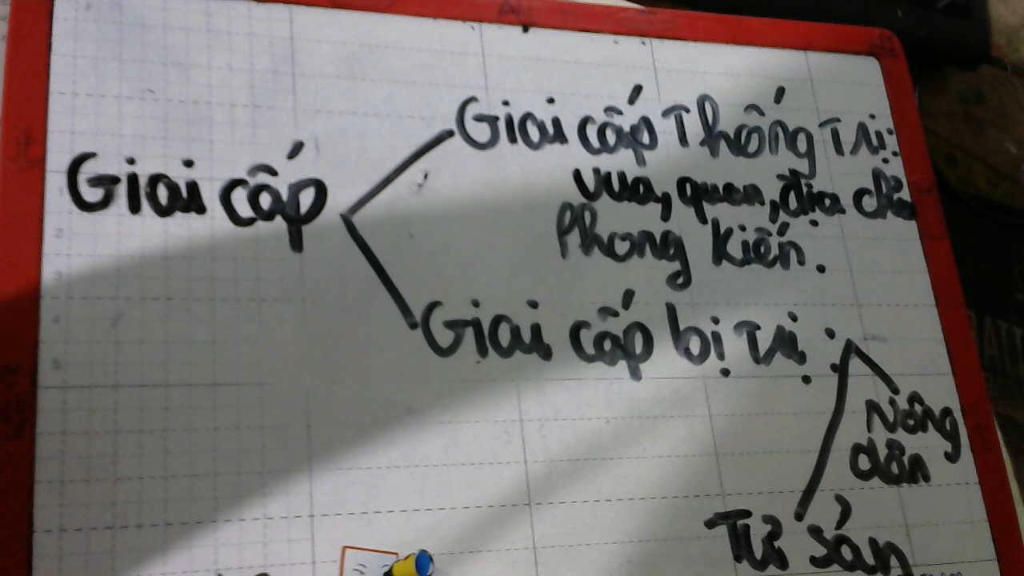 Giai cấp
Giai cấp Thống Trị:
vua, quan, địa chủ
Phong kiến.
Giai cấp bị trị:
Nông
dân
Tư sản